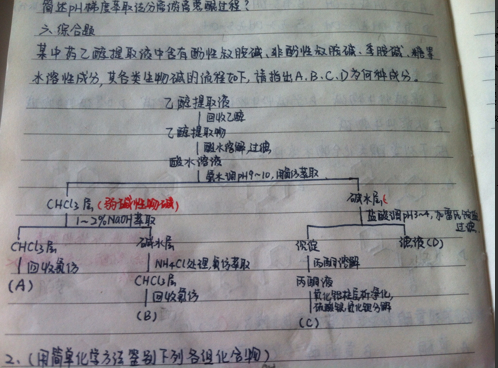 简述pH梯度萃取法分离
过程?
六、综合题
某中药乙醇提取液中含有酚性叔胺碱、非酚性叔胺碱、季胺碱、
水溶性成分,其各类生物碱的流程如下,请指出A、B、C、D为何种成分。
乙醇提取液
回收乙醇
乙醇提取物
酸水溶解,过滤
酸水溶液
氨水调pH9~10,氯仿萃取
CHCl3层(弱碱性物碱)
碱水层(
1~2%NaOH萃取
盐酸调pH3~4,加雷氏铵盐
过滤
CHCl3层
碱水层
沉淀
滤液(D)
回收氯仿
NH4Cl处理,氯仿萃取
丙酮溶解
(A)
CHCl3层
丙酮液
回收氯仿
氧化铝柱层析净化,
硫酸银,氯化钡分解
(B)
(C)
2、(用简单化学方法鉴别下列各组化合物)